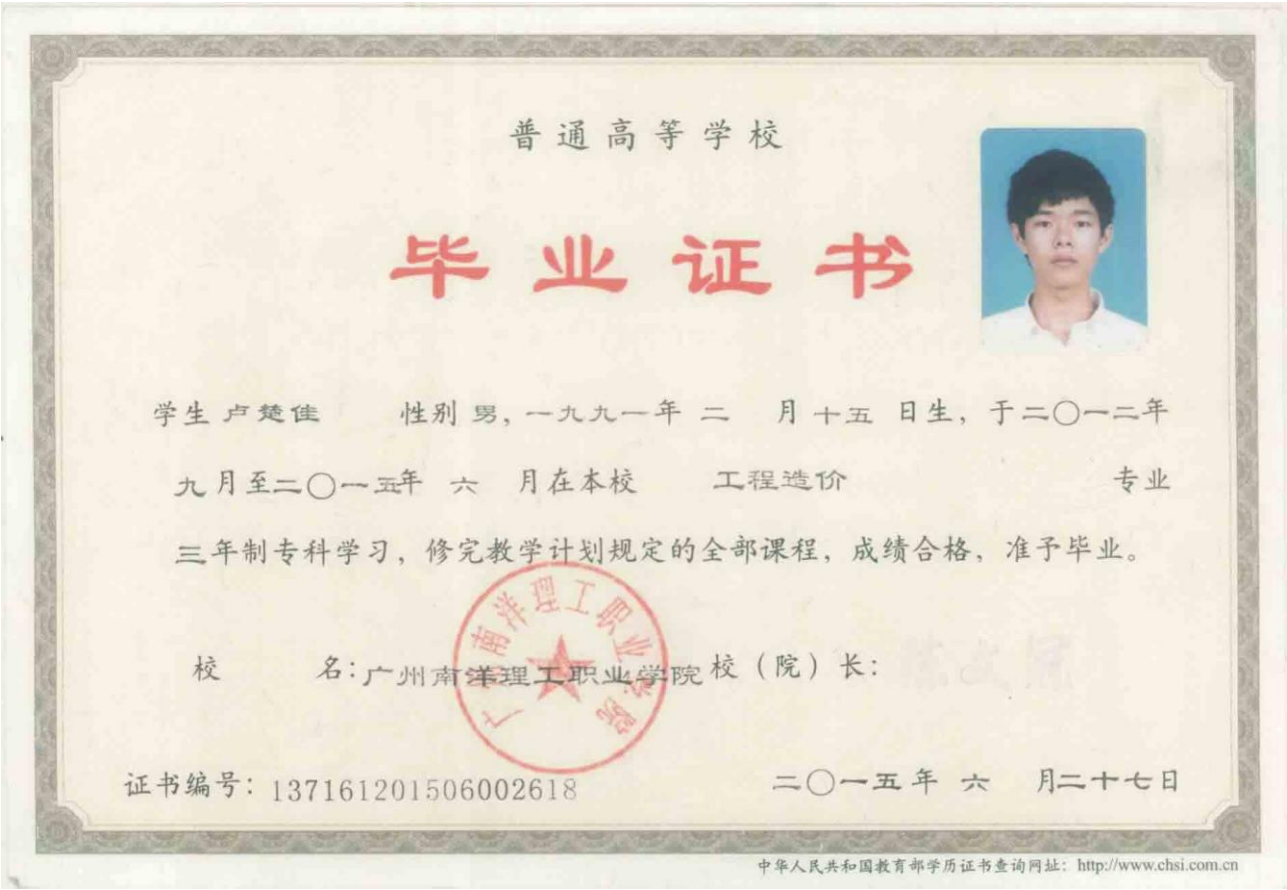 普通高等学校
毕业证书
学生 卢楚佳 性别 男, 一九九一年 二 月 十五 日生, 于二〇一二年
九月至二〇一五年 六 月在本校 工程造价 专业
三年制专科学习, 修完教学计划规定的全部课程, 成绩合格, 准予毕业。
广州南洋理工职业学院
校 名: 广州南洋理工职业学院 校 (院) 长:
证书编号: 137161201506002618 二〇一五年 六 月二十七日
中华人民共和国教育部学历证书查询网址: http://www.chsi.com.cn